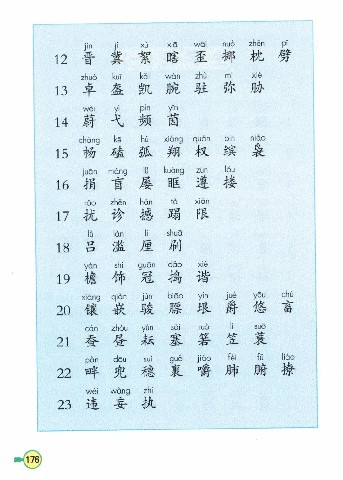 jìn jì xù xiā wāi nuó zhěn pī
12 晋 冀 絮 瞎 歪 挪 枕 劈
zhuó kuī kǎi wàn zhù mí xié
13 卓 盔 凯 腕 驻 弥 胁
wèi yì pín yīn
14 蔚 弋 频 茵
chàng kē hú xiáng quán bīn niǎo
15 畅 磕 弧 翔 权 缤 袅
juān máng lǚ kuàng zūn lǒu
16 捐 盲 屡 眶 遵 搂
rǎo zhěn hàn tà xiàn
17 扰 诊 撼 蹋 限
lǚ làn lí shuā
18 吕 滥 厘 刷
yán shì guān dǎo xié
19 檐 饰 冠 捣 谐
xiāng qiàn jùn biāo yín jué yōu chù
20 镶 嵌 骏 骠 垠 爵 悠 畜
cán zhòu yún sài ruò lì suō
21 蚕 昼 耘 塞 箬 笠 蓑
pàn dōu suì guǒ jiáo fèi fǔ liáo
22 畔 兜 穗 裹 嚼 肺 腑 撩
wéi wàng zhí
23 违 妄 执
176